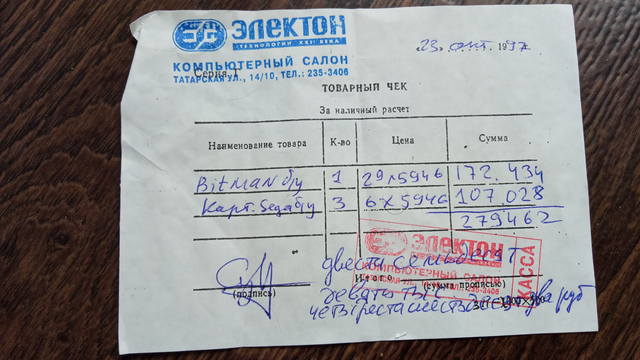 ЭЛЕКТОН
ТЕХНОЛОГИИ XXI ВЕКА
КОМПЬЮТЕРНЫЙ САЛОН
Серия 1
ТАТАРСКАЯ УЛ., 14/10, ТЕЛ.: 235-3406
23 окт. 1997
ТОВАРНЫЙ ЧЕК
За наличный расчет
Наименование товара К-во Цена Сумма
Bitman б/у 1 29×5946 172.434
Карт. Sega б/у 3 6×5946 107.028
279462
ЭЛЕКТОН
КОМПЬЮТЕРНЫЙ САЛОН
КАССА
двести семьдесят
Итого
(подпись) (сумма прописью)
девять тыс
четыреста шестьдесят два руб